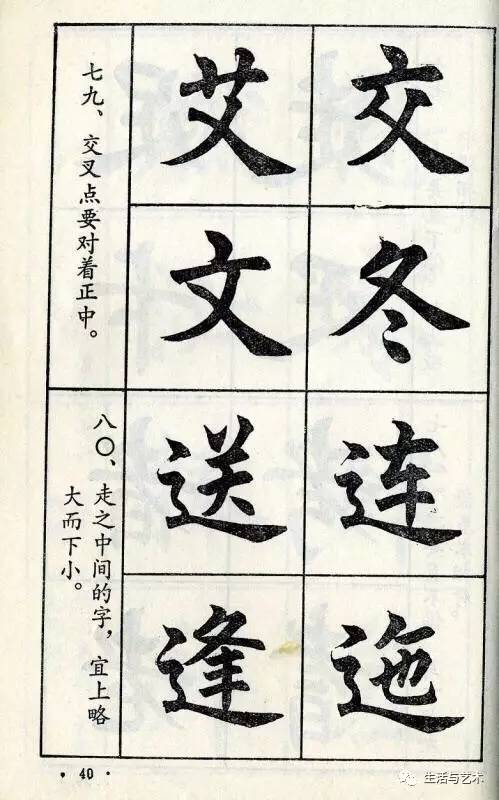 七九、交叉点要对着正中。
艾 交
文 冬
八〇、走之中间的字，宜上略
大而下小。
送 连
逢 迤
· 40 ·
生活与艺术